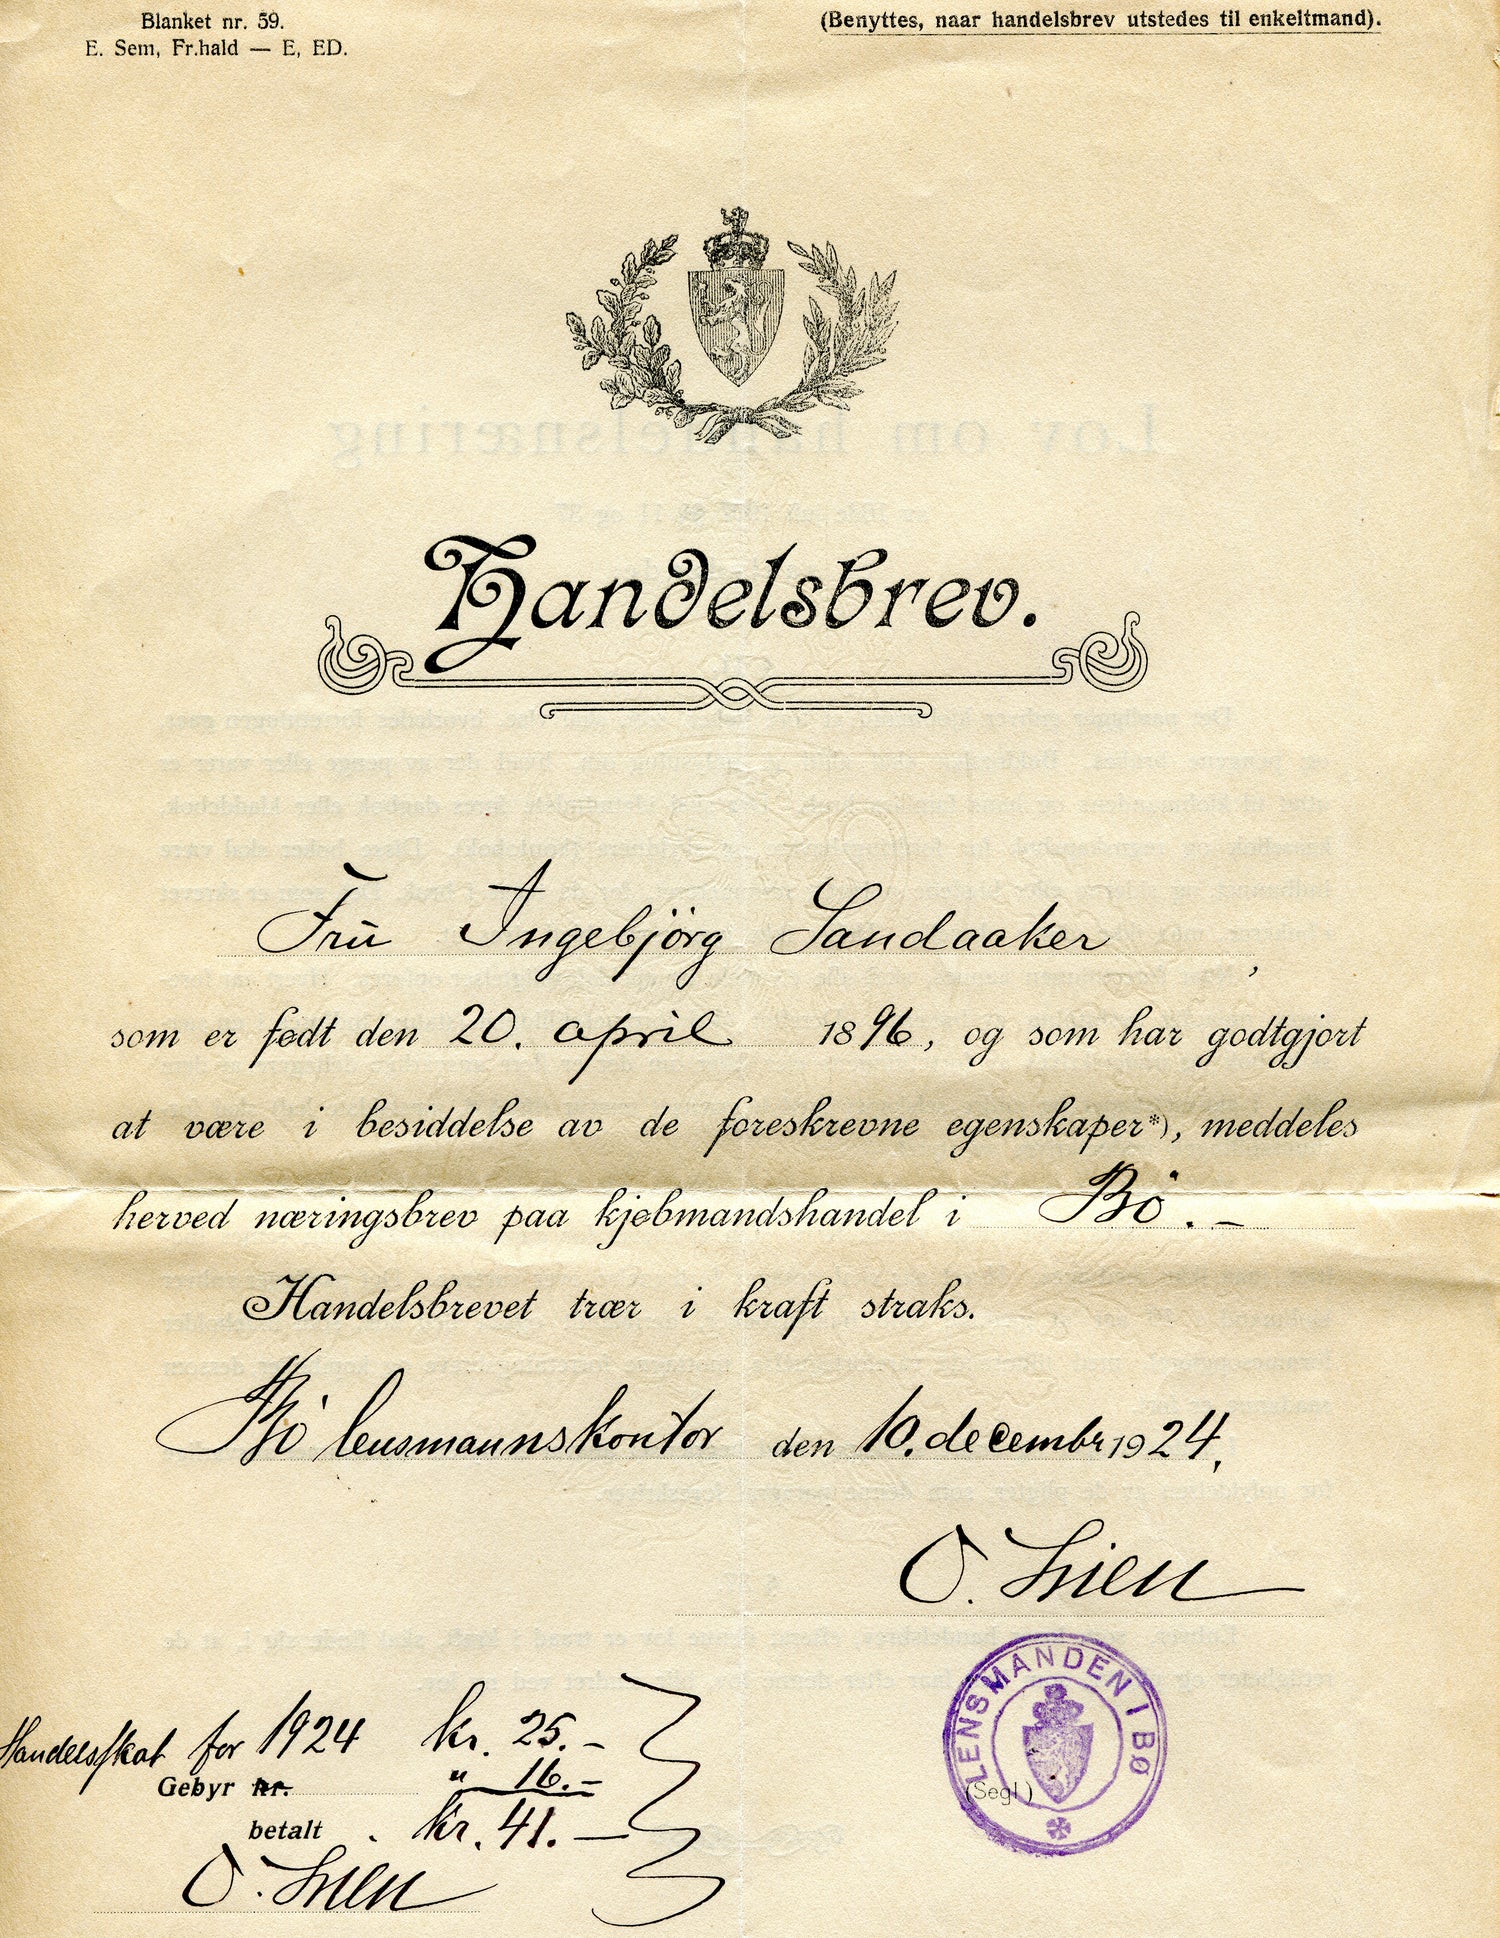 Blanket nr. 59.
E. Sem, Fr.hald — E, ED.
(Benyttes, naar handelsbrev utstedes til enkeltmand).
Handelsbrev.
Frŭ Ingebjörg Sandaaker ,
som er født den 20. april 1896, og som har godtgjort
at være i besiddelse av de foreskrevne egenskaper*), meddeles
herved næringsbrev paa kjøbmandshandel i Bó. –
Handelsbrevet trær i kraft straks.
Bó lensmannskontor den 10. decembr 1924.
O. Lien
LENSMANDEN I BØ
(Segl)
Handelsskat for 1924 kr. 25. –
Gebyr kr. " 16. –
betalt . kr. 41. —
O. Lien